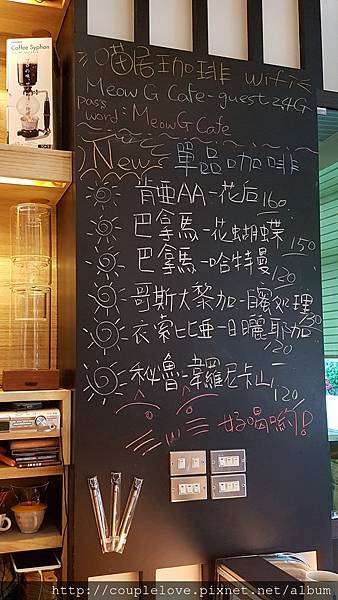 Coffee Syphon
喵居珈琲 wifi
MeowG Cafe-guest 2.4G
pass word:MeowG Cafe
New 單品咖啡
肯亞AA-花后 160
巴拿馬-花蝴蝶 150
巴拿馬-哈特曼 120
哥斯大黎加-日曬處理
衣索比亞-日曬耶加 120
秘魯-韋羅尼卡山 120
好喝喲!
http://couplelove.pixnet.net/album